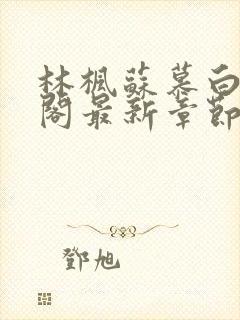 林楓蘇慕白
閣最新章節
鄧旭